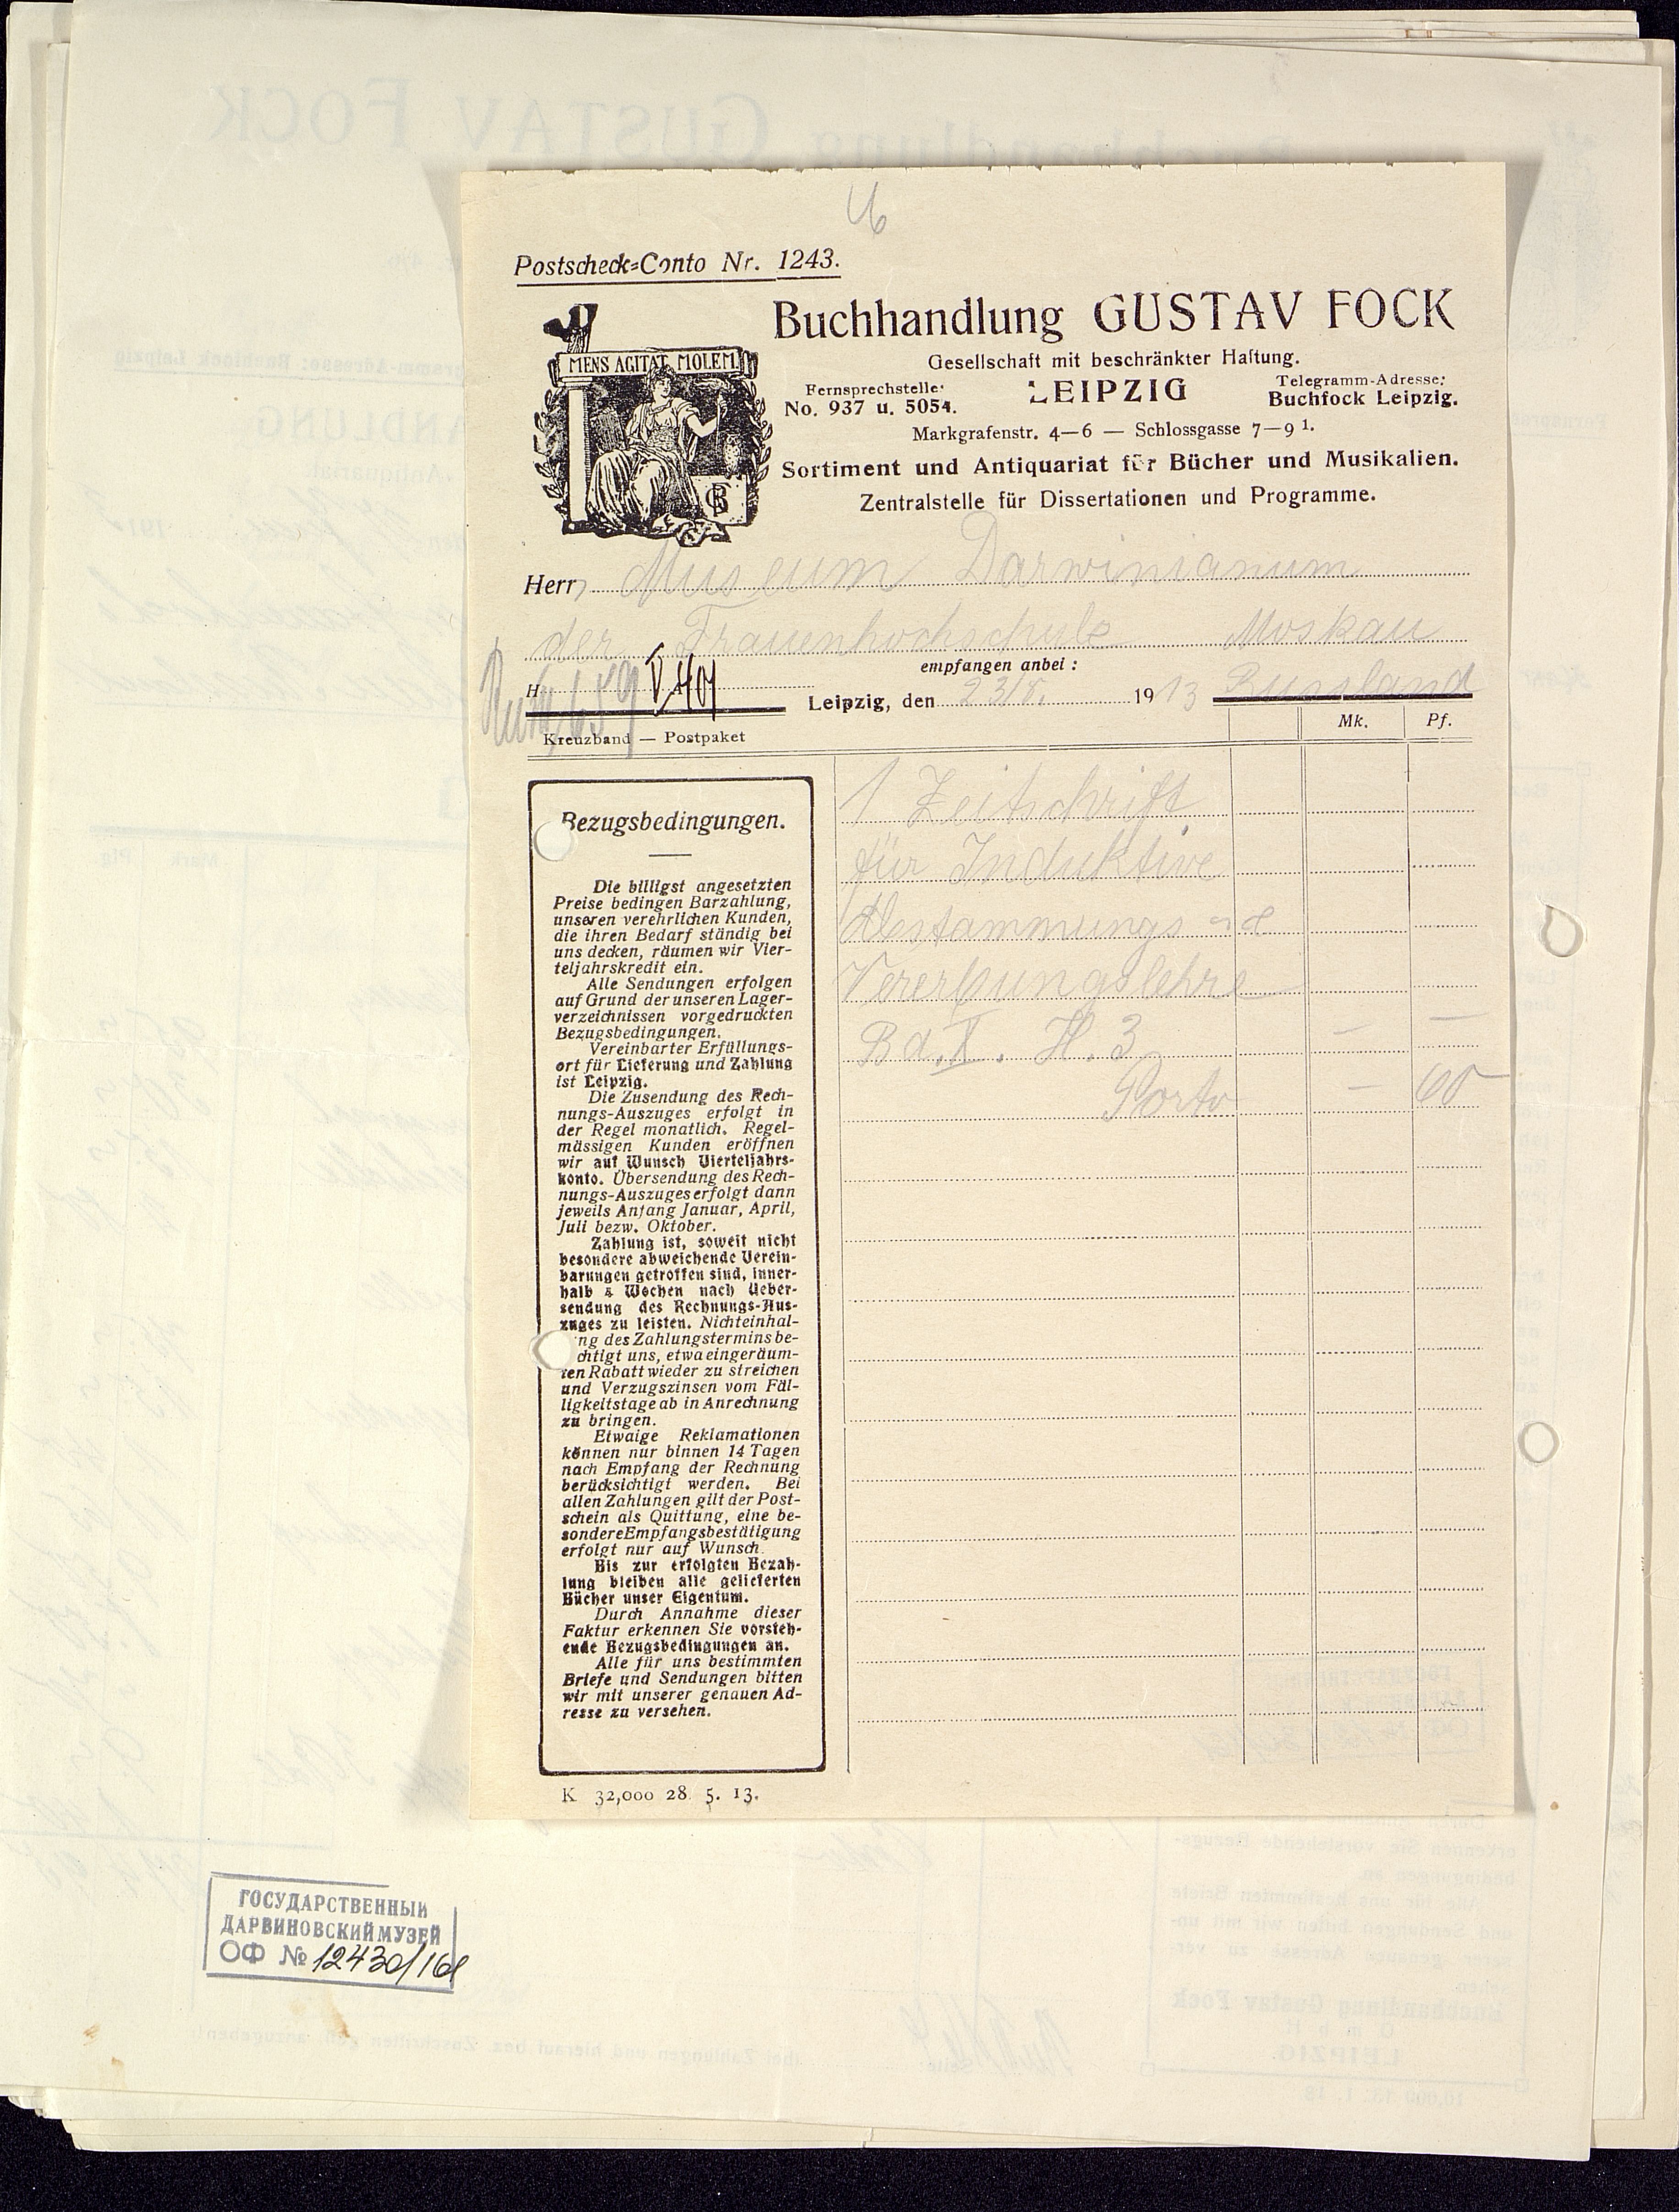 Postscheck=Conto Nr. 1243.
MENS AGITAT MOLEM.
Buchhandlung GUSTAV FOCK
Gesellschaft mit beschränkter Haftung.
Fernsprechstelle: LEIPZIG Telegramm-Adresse:
No. 937 u. 5054. Buchfock Leipzig.
Markgrafenstr. 4—6 — Schlossgasse 7—9 1.
Sortiment und Antiquariat für Bücher und Musikalien.
Zentralstelle für Dissertationen und Programme.
Herrn Museum Darwinianum
der Frauenhochschule Moskau
empfangen anbei :
H
Leipzig, den 23/8. 1913 Russland
Kreuzband — Postpaket
Mk. Pf.
Bezugsbedingungen.
Die billigst angesetzten
Preise bedingen Barzahlung,
unseren verehrlichen Kunden,
die ihren Bedarf ständig bei
uns decken, räumen wir Vier-
teljahrskredit ein.
Alle Sendungen erfolgen
auf Grund der unseren Lager-
verzeichnissen vorgedruckten
Bezugsbedingungen.
Vereinbarter Erfüllungs-
ort für Lieferung und Zahlung
ist Leipzig.
Die Zusendung des Rech-
nungs-Auszuges erfolgt in
der Regel monatlich. Regel-
mässigen Kunden eröffnen
wir auf Wunsch Vierteljahrs-
konto. Übersendung des Rech-
nungs-Auszuges erfolgt dann
jeweils Anfang Januar, April,
Juli bezw. Oktober.
Zahlung ist, soweit nicht
besondere abweichende Verein-
barungen getroffen sind, inner-
halb 4 Wochen nach Ueber-
sendung des Rechnungs-Aus-
zuges zu leisten. Nichteinhal-
ng des Zahlungstermins be-
chtigt uns, etwa eingeräum-
ten Rabatt wieder zu streichen
und Verzugszinsen vom Fäl-
ligkeitstage ab in Anrechnung
zu bringen.
Etwaige Reklamationen
können nur binnen 14 Tagen
nach Empfang der Rechnung
berücksichtigt werden. Bei
allen Zahlungen gilt der Post-
schein als Quittung, eine be-
sondere Empfangsbestätigung
erfolgt nur auf Wunsch.
Bis zur erfolgten Bezah-
lung bleiben alle gelieferten
Bücher unser Eigentum.
Durch Annahme dieser
Faktur erkennen Sie vorsteh-
ende Bezugsbedingungen an.
Alle für uns bestimmten
Briefe und Sendungen bitten
wir mit unserer genauen Ad-
resse zu versehen.
1 Zeitschrift
für Induktive
Abstammungs und
Vererbungslehre
Bd. X. H. 3 — —
Porto — 60
K 32,000 28. 5. 13.
ГОСУДАРСТВЕННЫЙ
ДАРВИНОВСКИЙ МУЗЕЙ
ОФ № 12430/161